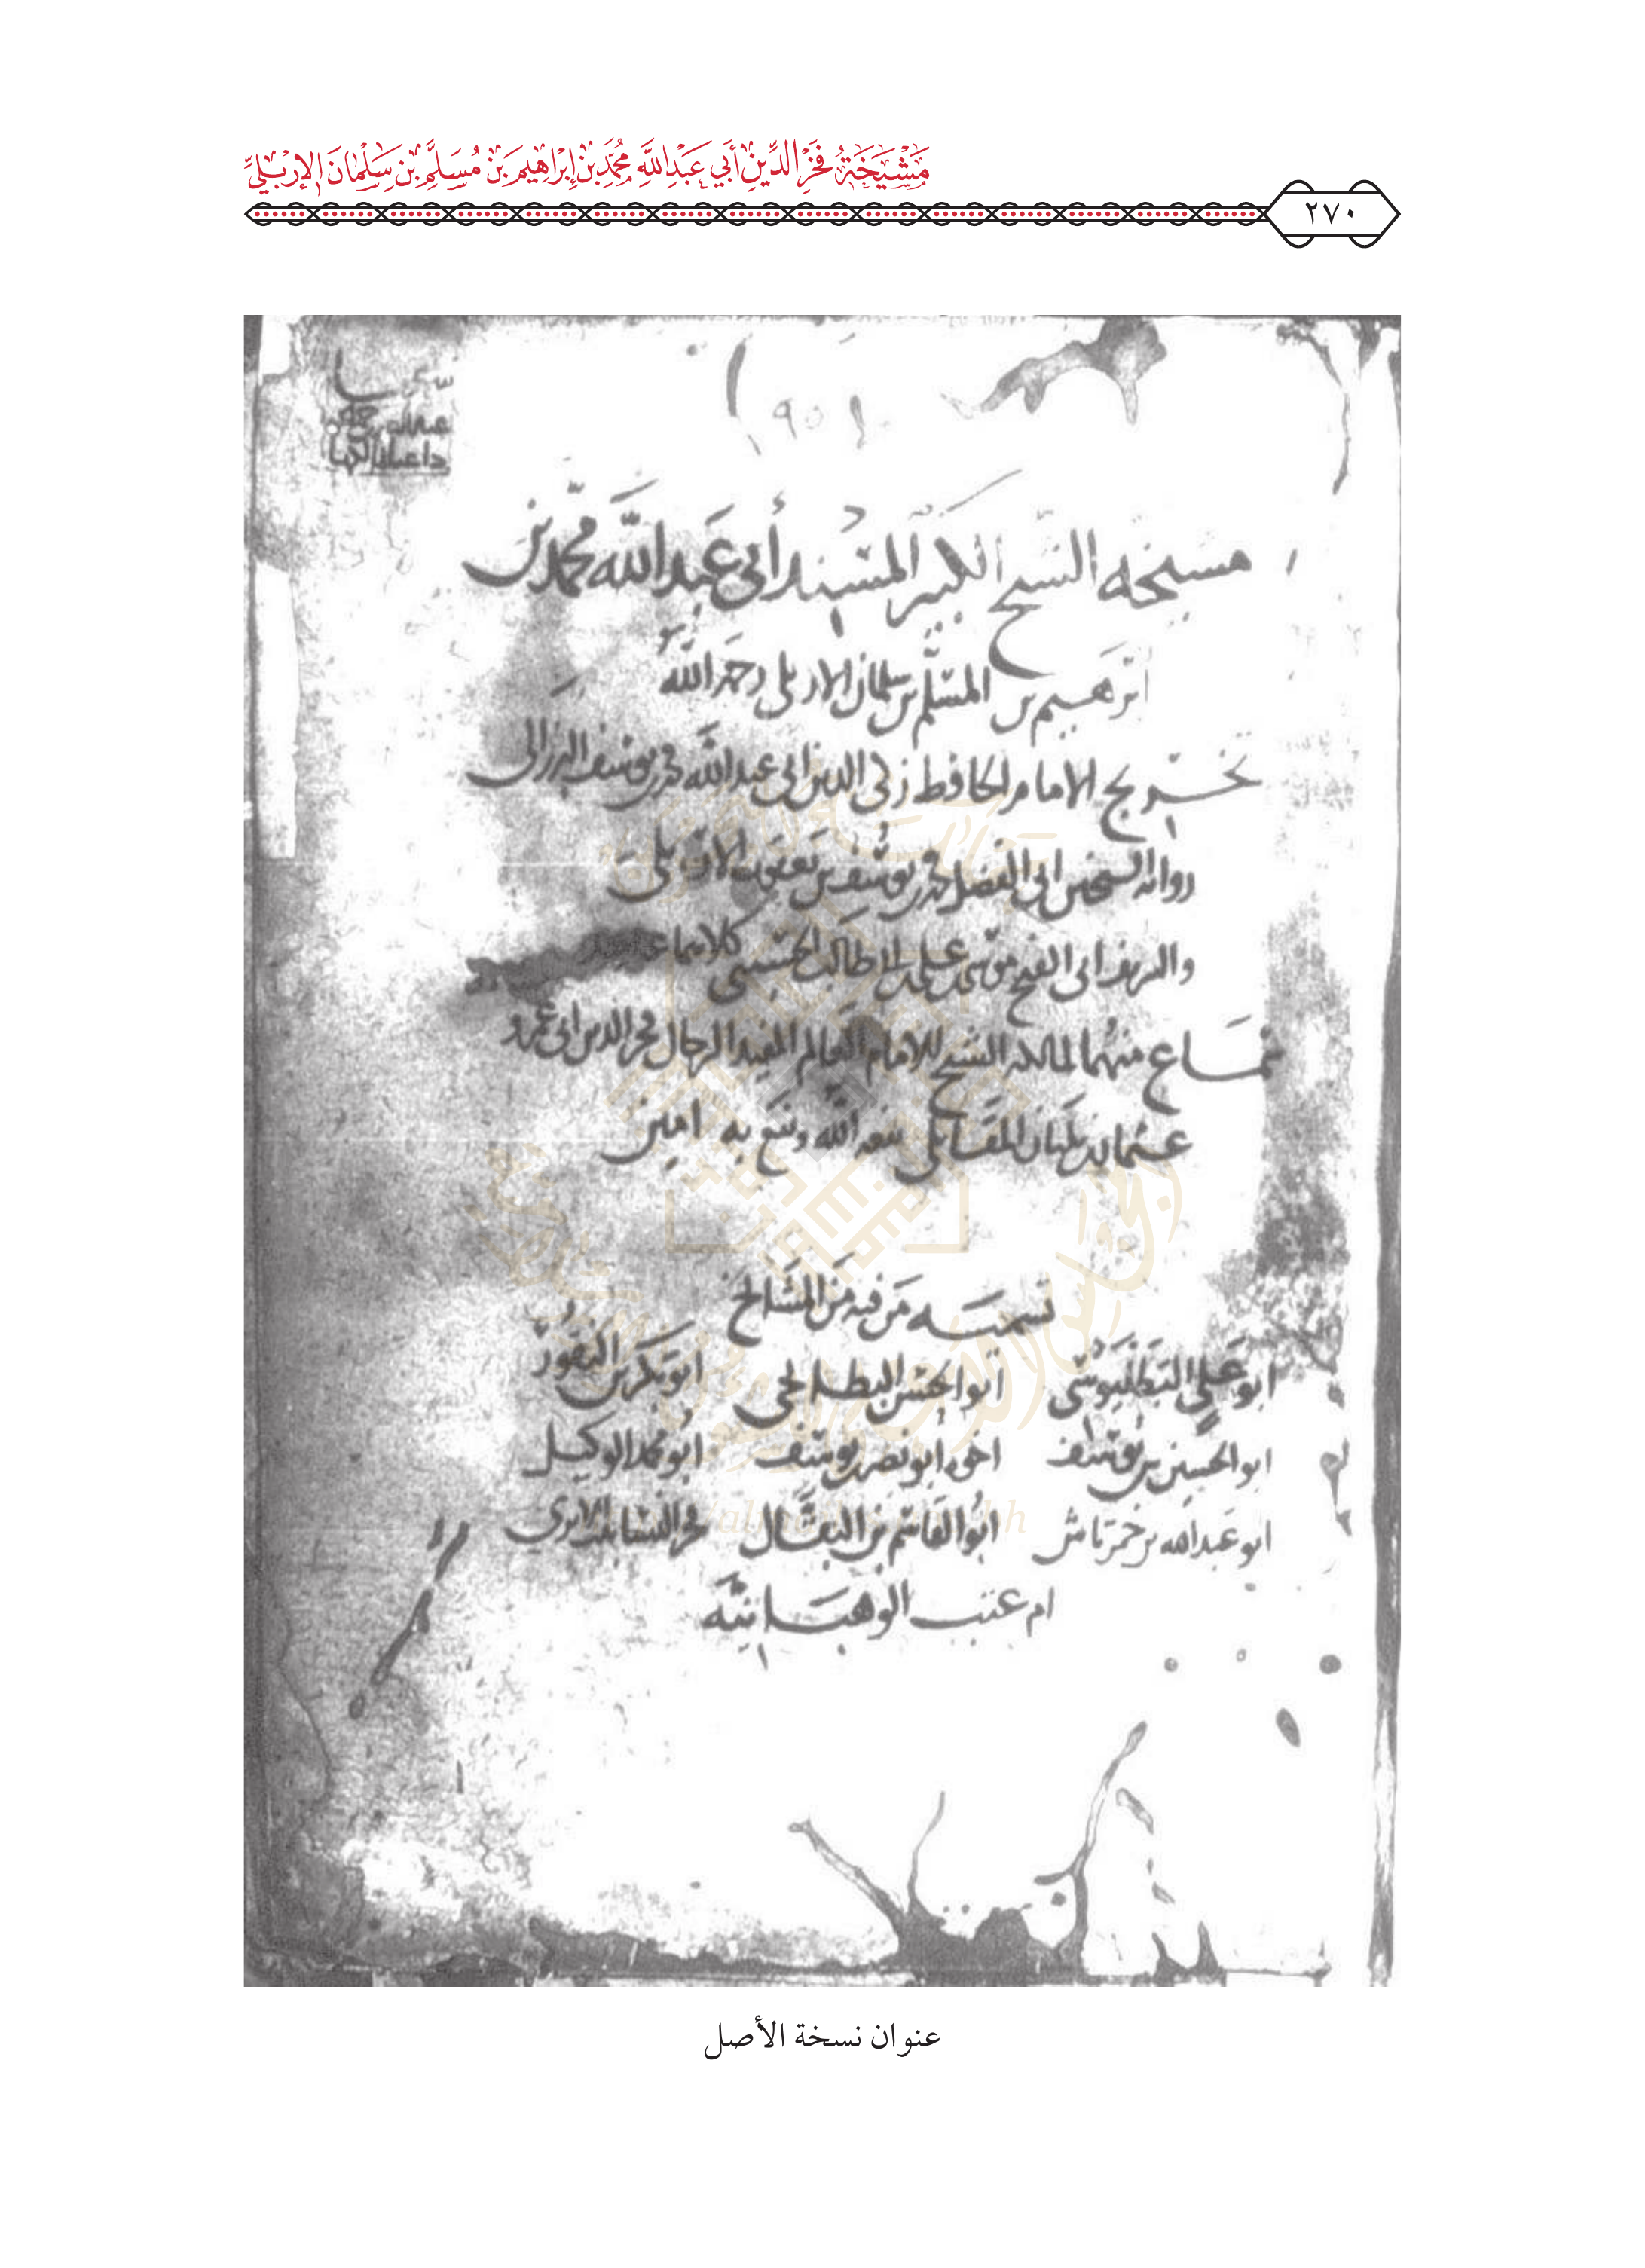 مَشْيَخَةُ فَخْرِ الدِّينِ أَبِي عَبْدِ اللَّهِ مُحَمَّدِ بْنِ إِبْرَاهِيمَ بْنِ مُسَلَّمِ بْنِ سَلْمَانَ الإِرْبِلِيِّ
٢٧٠
مسيخه الشيخ الكبير المسند أبي عبد الله محمد بن
ابرهيم بن المسلم بن سلمان الاربلي رحمه الله
تخريج الامام الحافظ زكي الدين ابي عبد الله محمد بن يوسف البرزالي
رواية الشيخين ابي الفضل محمد بن يوسف بن يعقوب الاربلي
والشريف ابي الفتح موسى بن علي بن ابي طالب الحسيني كلاهما عنه
سماع منهما لمالكه الشيخ الامام العالم المفيد الرحال فخر الدين ابي عمرو
عثمان بن بلبان المقاتلي نفعه الله ونفع به امين
تسمية من فيه من المشايخ
ابو علي البطليوسي ابو الحسن البطايحي ابو بكر بن النقور
ابو الحسين بن يوسف اخوه أبو نصر بن يوسف أبو محمد الوكيل
ابو عبد الله بن خمرتاش أبو القاسم بن البقال فخر النسا بنت الابري
ام عتب الوهبانية
عنوان نسخة الأصل